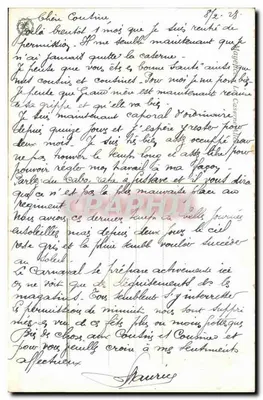 Chère Cousine 8/2. 28.
Voilà bientôt 1 mois que je suis rentré de
permission. Il me semble maintenant que je
n'ai jamais quitté la caserne.
J'espère que vous êtes en bonne santé ainsi que
mes cousins et cousines. Pour moi je me porte bien
J'espère que Grand'mère est maintenant
sa grippe et qu'elle va bien.
Je suis maintenant caporal d'ordinaire
depuis quinze jours et j'espère y rester pour
deux mois. Je suis très bien assez occupé pour
ne pas trouver le temps long et assez libre pour
pouvoir régler mon travail à ma façon.
Parlez du à Gustave et il vous dira
que ce n'est pas la plus mauvaise place au
régiment
Nous avons eu dernier temps de belles journées
ensoleillées mais depuis deux jours le ciel
reste gris et la pluie semble vouloir succéder
au soleil.
Le Carnaval se prépare activement ici
on ne voit que des déguisements dans les
magasins. Tous semblent s'y intéresser
les permissions de minuit nous sont suppri
mées en vue de ces fêtes plus ou moins
de choses aux Cousins et Cousines et
pour vous veuillez croire à mes sentiments
affectueux
Maurice